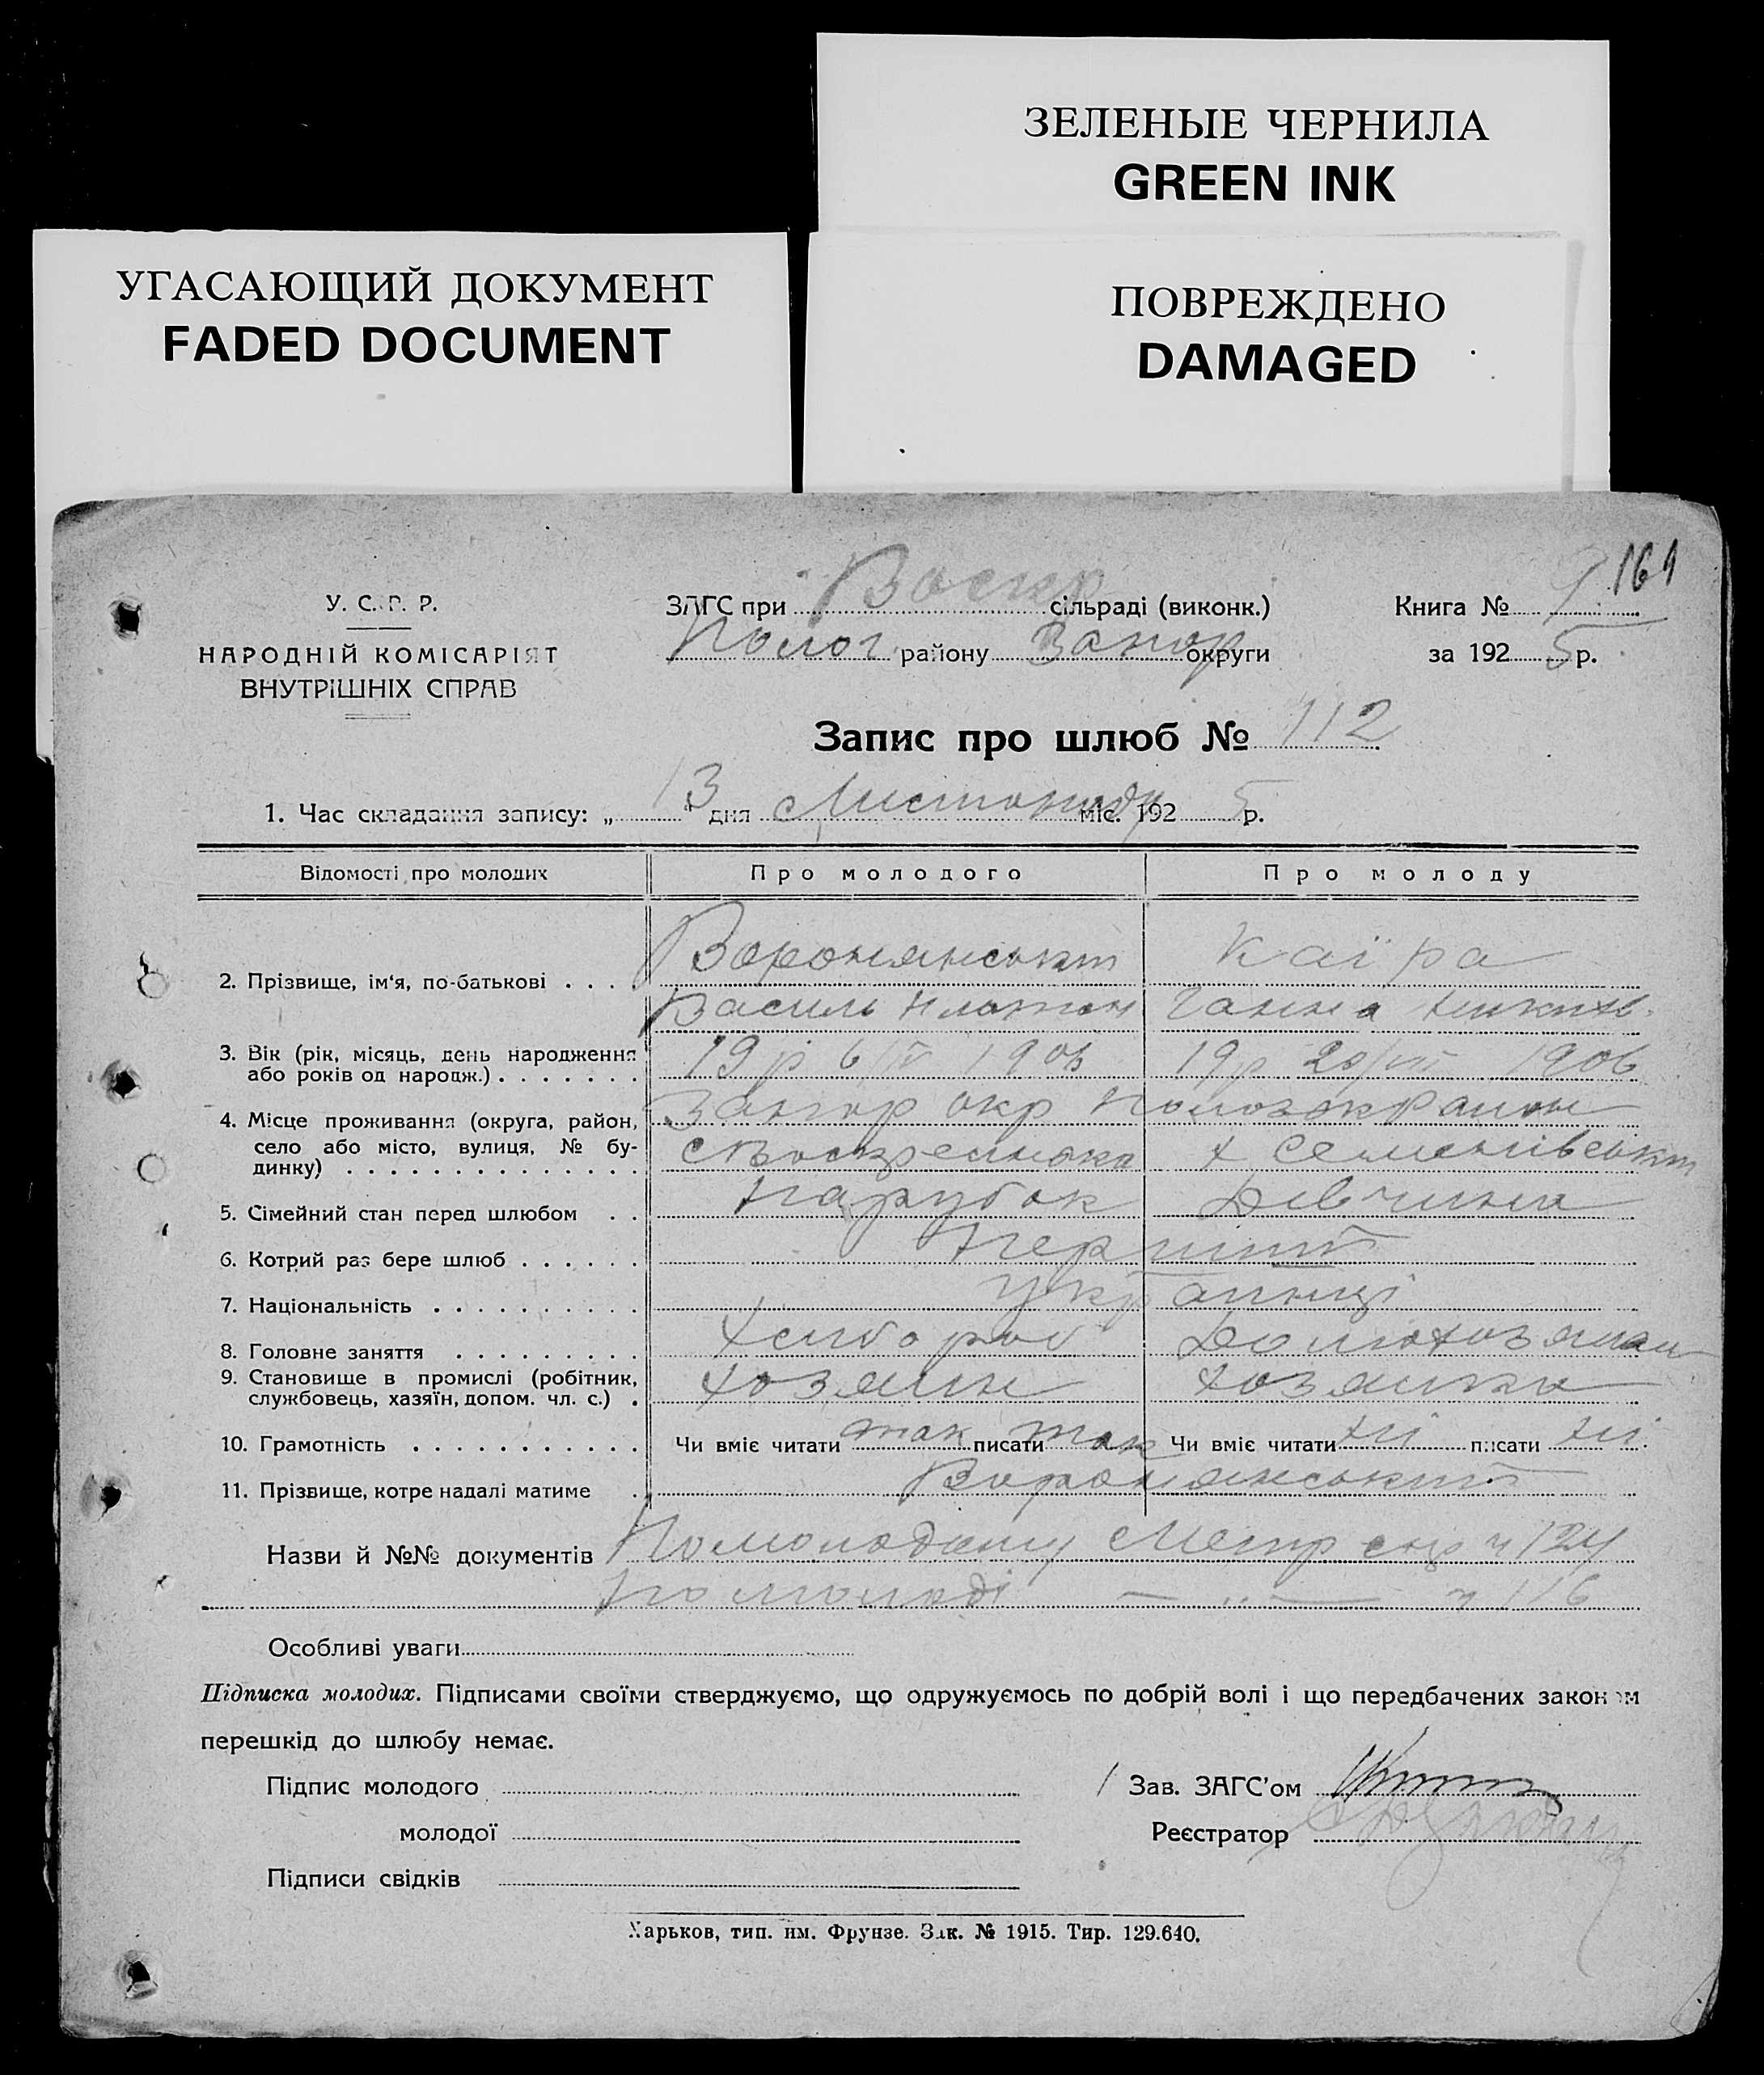 ЗЕЛЕНЫЕ ЧЕРНИЛА
GREEN INK
УГАСАЮЩИЙ ДОКУМЕНТ
FADED DOCUMENT
ПОВРЕЖДЕНО
DAMAGED
161
У. С. Р. Р.
НАРОДНІЙ КОМІСАРІЯТ
ВНУТРІШНІХ СПРАВ
ЗАГС при Воскр сільраді (виконк.)
Полог району Запор округи
Книга №
за 1925 р.
Запис про шлюб № 112
1. Час складання запису: „13" дня Листопаду міс. 1925 р.
Відомості про молодих Про молодого Про молоду
2. Прізвище, ім'я, по-батькові . . . . Воронянський Каїра
Василь Ганна
3. Вік (рік, місяць, день народження 19 р 6/IV 1906 19 р 20/VII 1906
або років од народж.) . . . . . . .
4. Місце проживання (округа, район, Запор окр
село або місто, вулиця, № бу- с Воскресенка х Семенівський
динку) . . . . . . . . . . . . . .
5. Сімейний стан перед шлюбом . . Парубок Дівчина
6. Котрий раз бере шлюб . . . . . . Перший
7. Національність . . . . . . . . . . Українці
8. Головне заняття . . . . . . . . . Хлібороб
9. Становище в промислі (робітник, хозяин хозяйка
службовець, хазяїн, допом. чл. с.) .
10. Грамотність . . . . . . . . . . . Чи вміє читати так писати так Чи вміє читати ні писати ні.
11. Прізвище, котре надалі матиме . Воронянський
Назви й №№ документів По молодому Метр ч 124
по молоді — „ — ч 116
Особливі уваги
Підписка молодих. Підписами своїми стверджуємо, що одружуємось по добрій волі і що передбачених законом
перешкід до шлюбу немає.
Підпис молодого
Зав. ЗАГС'ом
молодої
Реєстратор
Підписи свідків
Харьков, тип. им. Фрунзе. Зак. № 1915. Тир. 129.640.